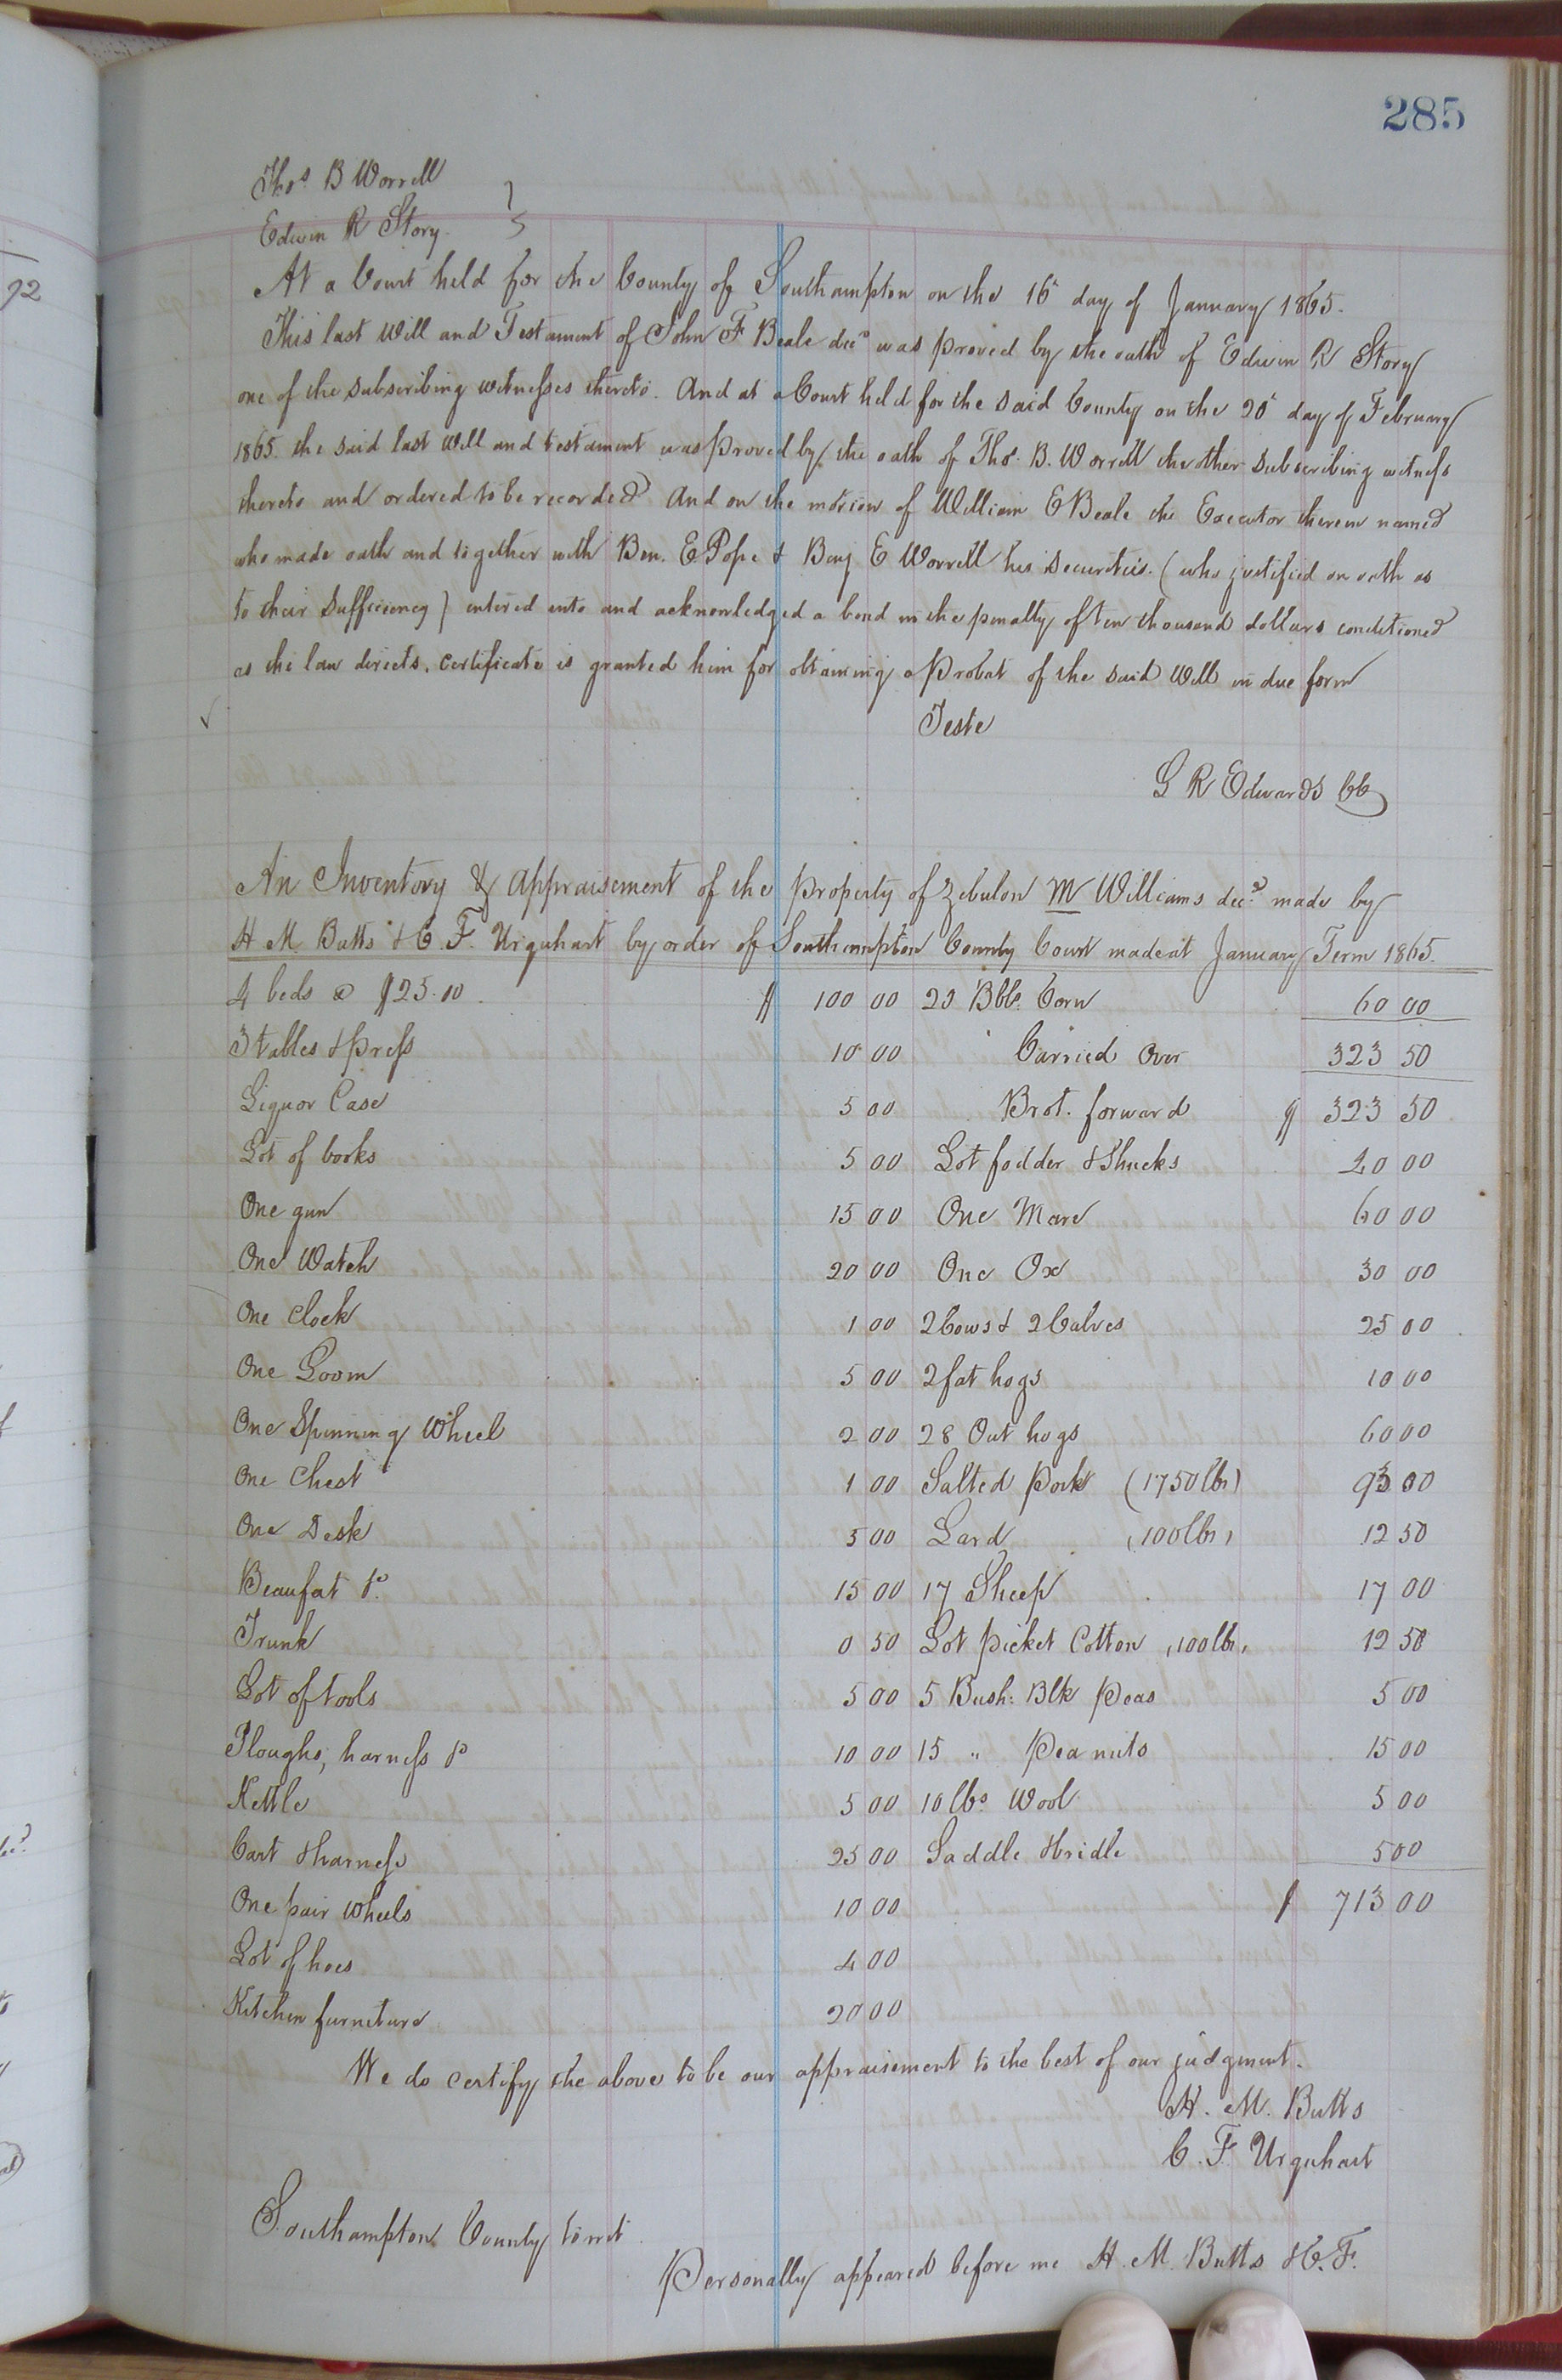 285
Thos. B Worrell
Edwin R Story
At a Court held for the County of Southampton on the 16th day of January 1865.
This last Will and Testament of John F Beale decd was proved by the oath of Edwin R Story
one of the subscribing witnesses thereto. And at a Court held for the said County on the 20th day of February
1865. the said last Will and testament was proved by the oath of Thos. B. Worrell the other subscribing witness
thereto and ordered to be recorded And on the motion of William E Beale the Executor therein named
who made oath and together with Ben. E Pope & Benj E Worrell his securities. (who justified on oath as
to their sufficiency) entered into and acknowledged a bond in the penalty of ten thousand dollars conditioned
as the law directs. Certificate is granted him for obtaining a Probat of the said Will in due form
Teste
L R Edwards CC
An Inventory & Appraisement of the Property of Zebulon M Williams decd. made by
H M Butts & C. F. Urquhart by order of Southampton County Court made at January Term 1865.
4 beds @ $25.00 $ 100 00 20 Bbls. Corn 60 00
3 tables & Press 10 00 Carried Over 323 50
Liquor Case 5 00 Brot. forward $ 323 50
Lot of books 5 00 Lot fodder & Shucks 40 00
One gun 15 00 One Mare 60 00
One Watch 20 00 One Ox 30 00
One Clock 1 00 2 Cows & 2 Calves 25 00
One Loom 5 00 2 fat hogs 10 00
One Spinning Wheel 2 00 28 Out hogs 60 00
One Chest 1 00 Salted Pork (1750 lbs) 00
One Desk 5 00 Lard (100 lbs) 12 50
Beaufat 15 00 17 Sheep 17 00
Trunk 0 50 Lot Picket Cotton (100 lbs) 12 50
Lot of tools 5 00 5 Bush: Blk Peas 5 00
Ploughs, harness 10 00 15 " Pea nuts 15 00
Kettle 5 00 10 lbs. Wool 5 00
Cart & harness 25 00 Saddle & bridle 5 00
One pair Wheels 10 00 $ 713 00
Lot of hoes 4 00
Kitchen furniture 20 00
We do certify the above to be our appraisement to the best of our judgment.
H. M. Butts
C. F. Urquhart
Southampton County to wit
Personally appeared before me H. M. Butts & C. F.
92